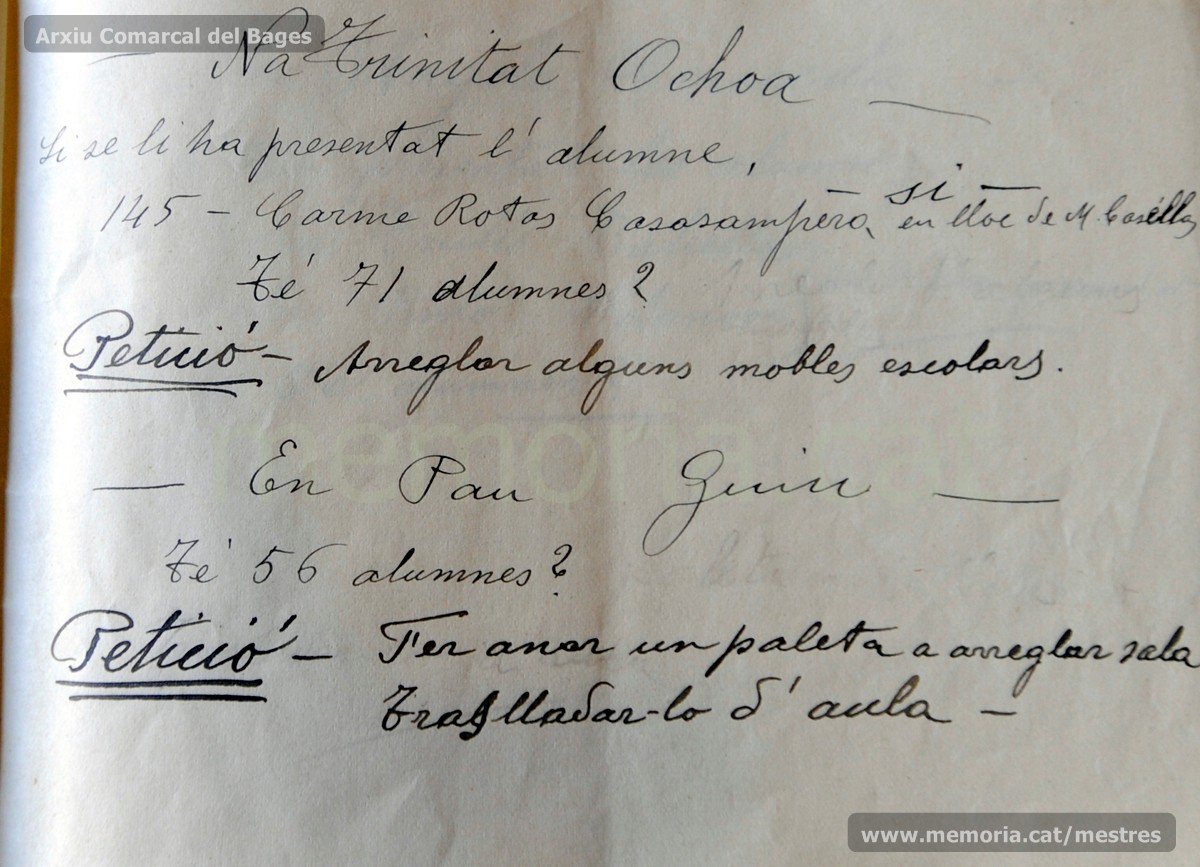 Arxiu Comarcal del Bages
— Na Trinitat Ochoa —
Si se li ha presentat l' alumne,
— si —
145 - Carme Rotas Casasampera, en lloc de M. Casellas
Té 71 alumnes?
Petició - Arreglar alguns mobles escolars.
memoria.cat
— En Pau Guiu —
Té 56 alumnes?
Petició - Fer anar un paleta a arreglar sala
traslladar-lo d' aula -
www.memoria.cat/mestres